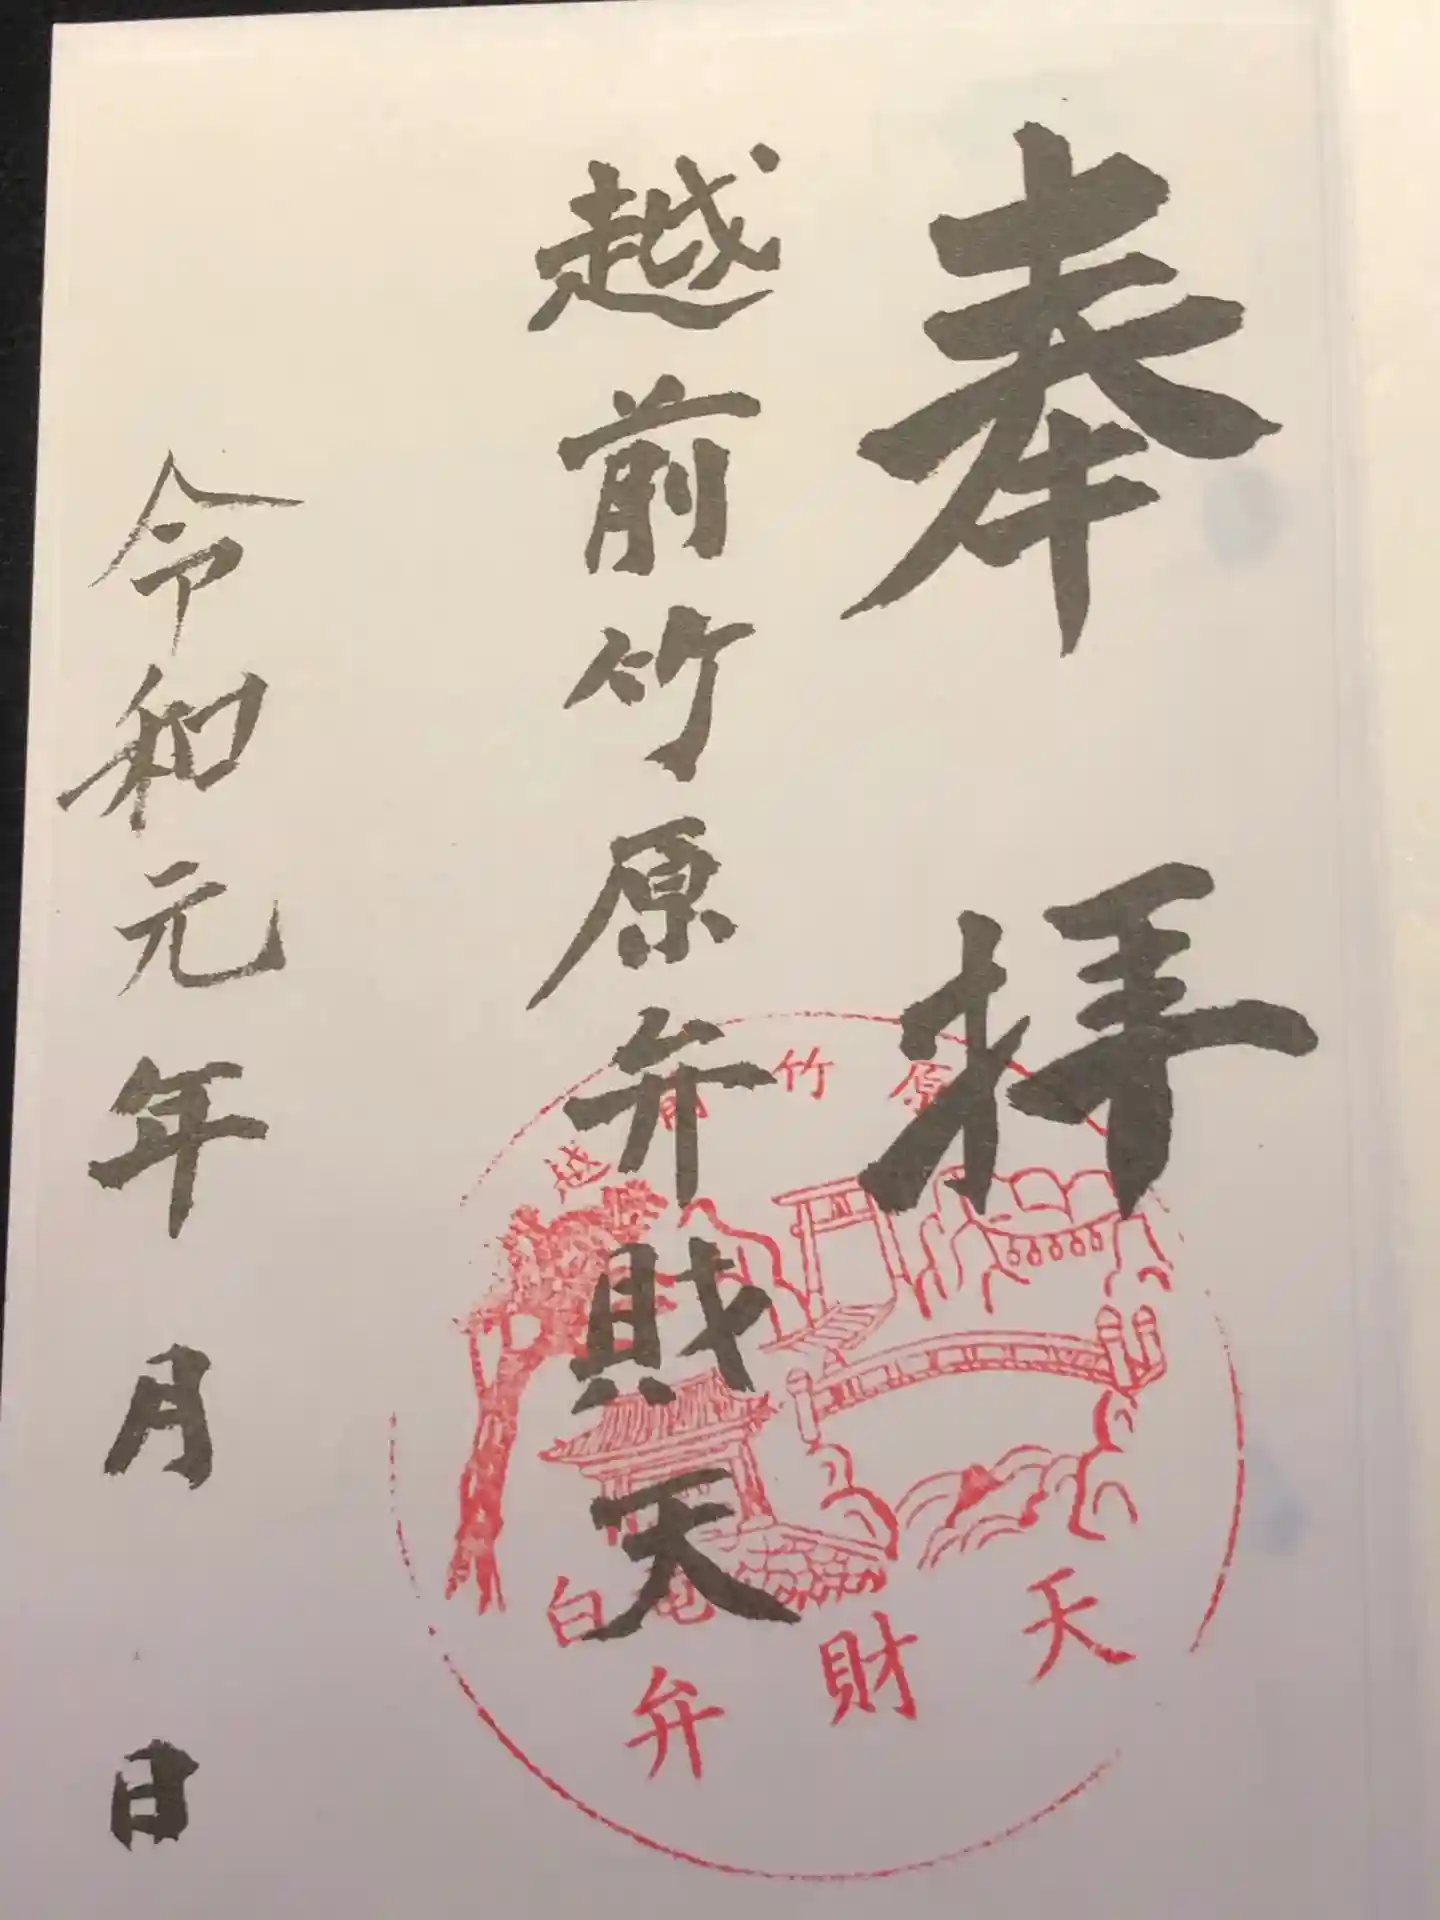 奉拝
越前竹原弁財天
令和元年 月 日
越前竹原
白
弁財天